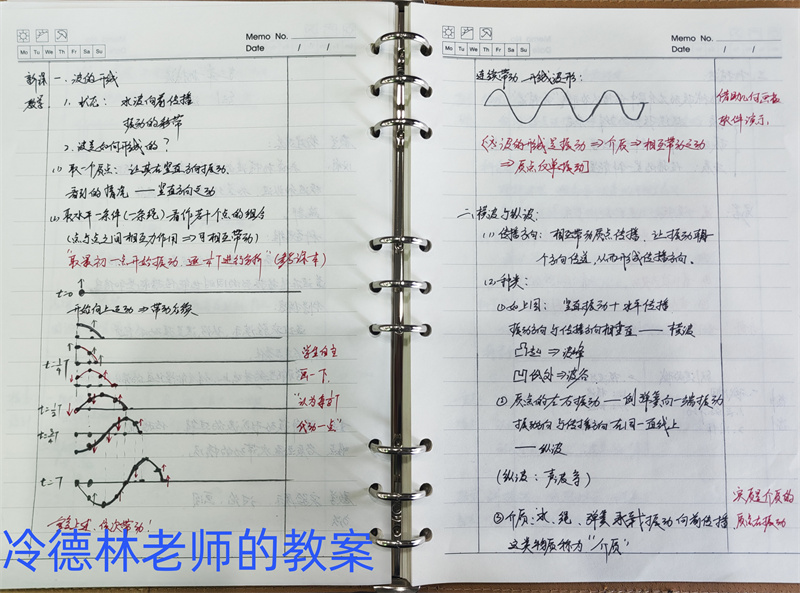 Memo No.
Date / /
Mo Tu We Th Fr Sa Su
新课
教学
一、波的形成
1. 状态：水波向前传播
振动的绳带
2. 波是如何形成的？
(1) 取一个质点：让其在竖直方向振动
看到的情况——竖直方向运动
(2) 取水平一条件(一条绳)看作若干个点的组合
(点与点之间相互力作用⇒可相互带动)
"取最初一点开始振动，逐¼T进行分析"(参课本)
t=0
开始向上运动⇒带动右侧
t=¼T
t=½T
t=¾T
t=T
学生自主
画一下
"认为每¼T
代动一点"
冷德林老师的教案
Memo No.
Date / /
Mo Tu We Th Fr Sa Su
连续带动 形成波形：
借助几何画板
软件演示
⇒质点仅单振动]
二、横波与纵波：
(1) 传播方向：相互带动质点传播，让振动朝
个方向传送，从而形成传播方向。
(2) 种类：
①如上图：竖直振动+水平传播
振动方向与传播方向相垂直——横波
凸起⇒波峰
凹处⇒波谷
②质点的左右振动——例弹簧向一端振动
振动方向与传播方向在同一直线上
——纵波
(纵波：声波等)
③介质：水、绳、弹簧 承载振动向前传播
这类物质称为"介质"
实质是介质的
质点在振动